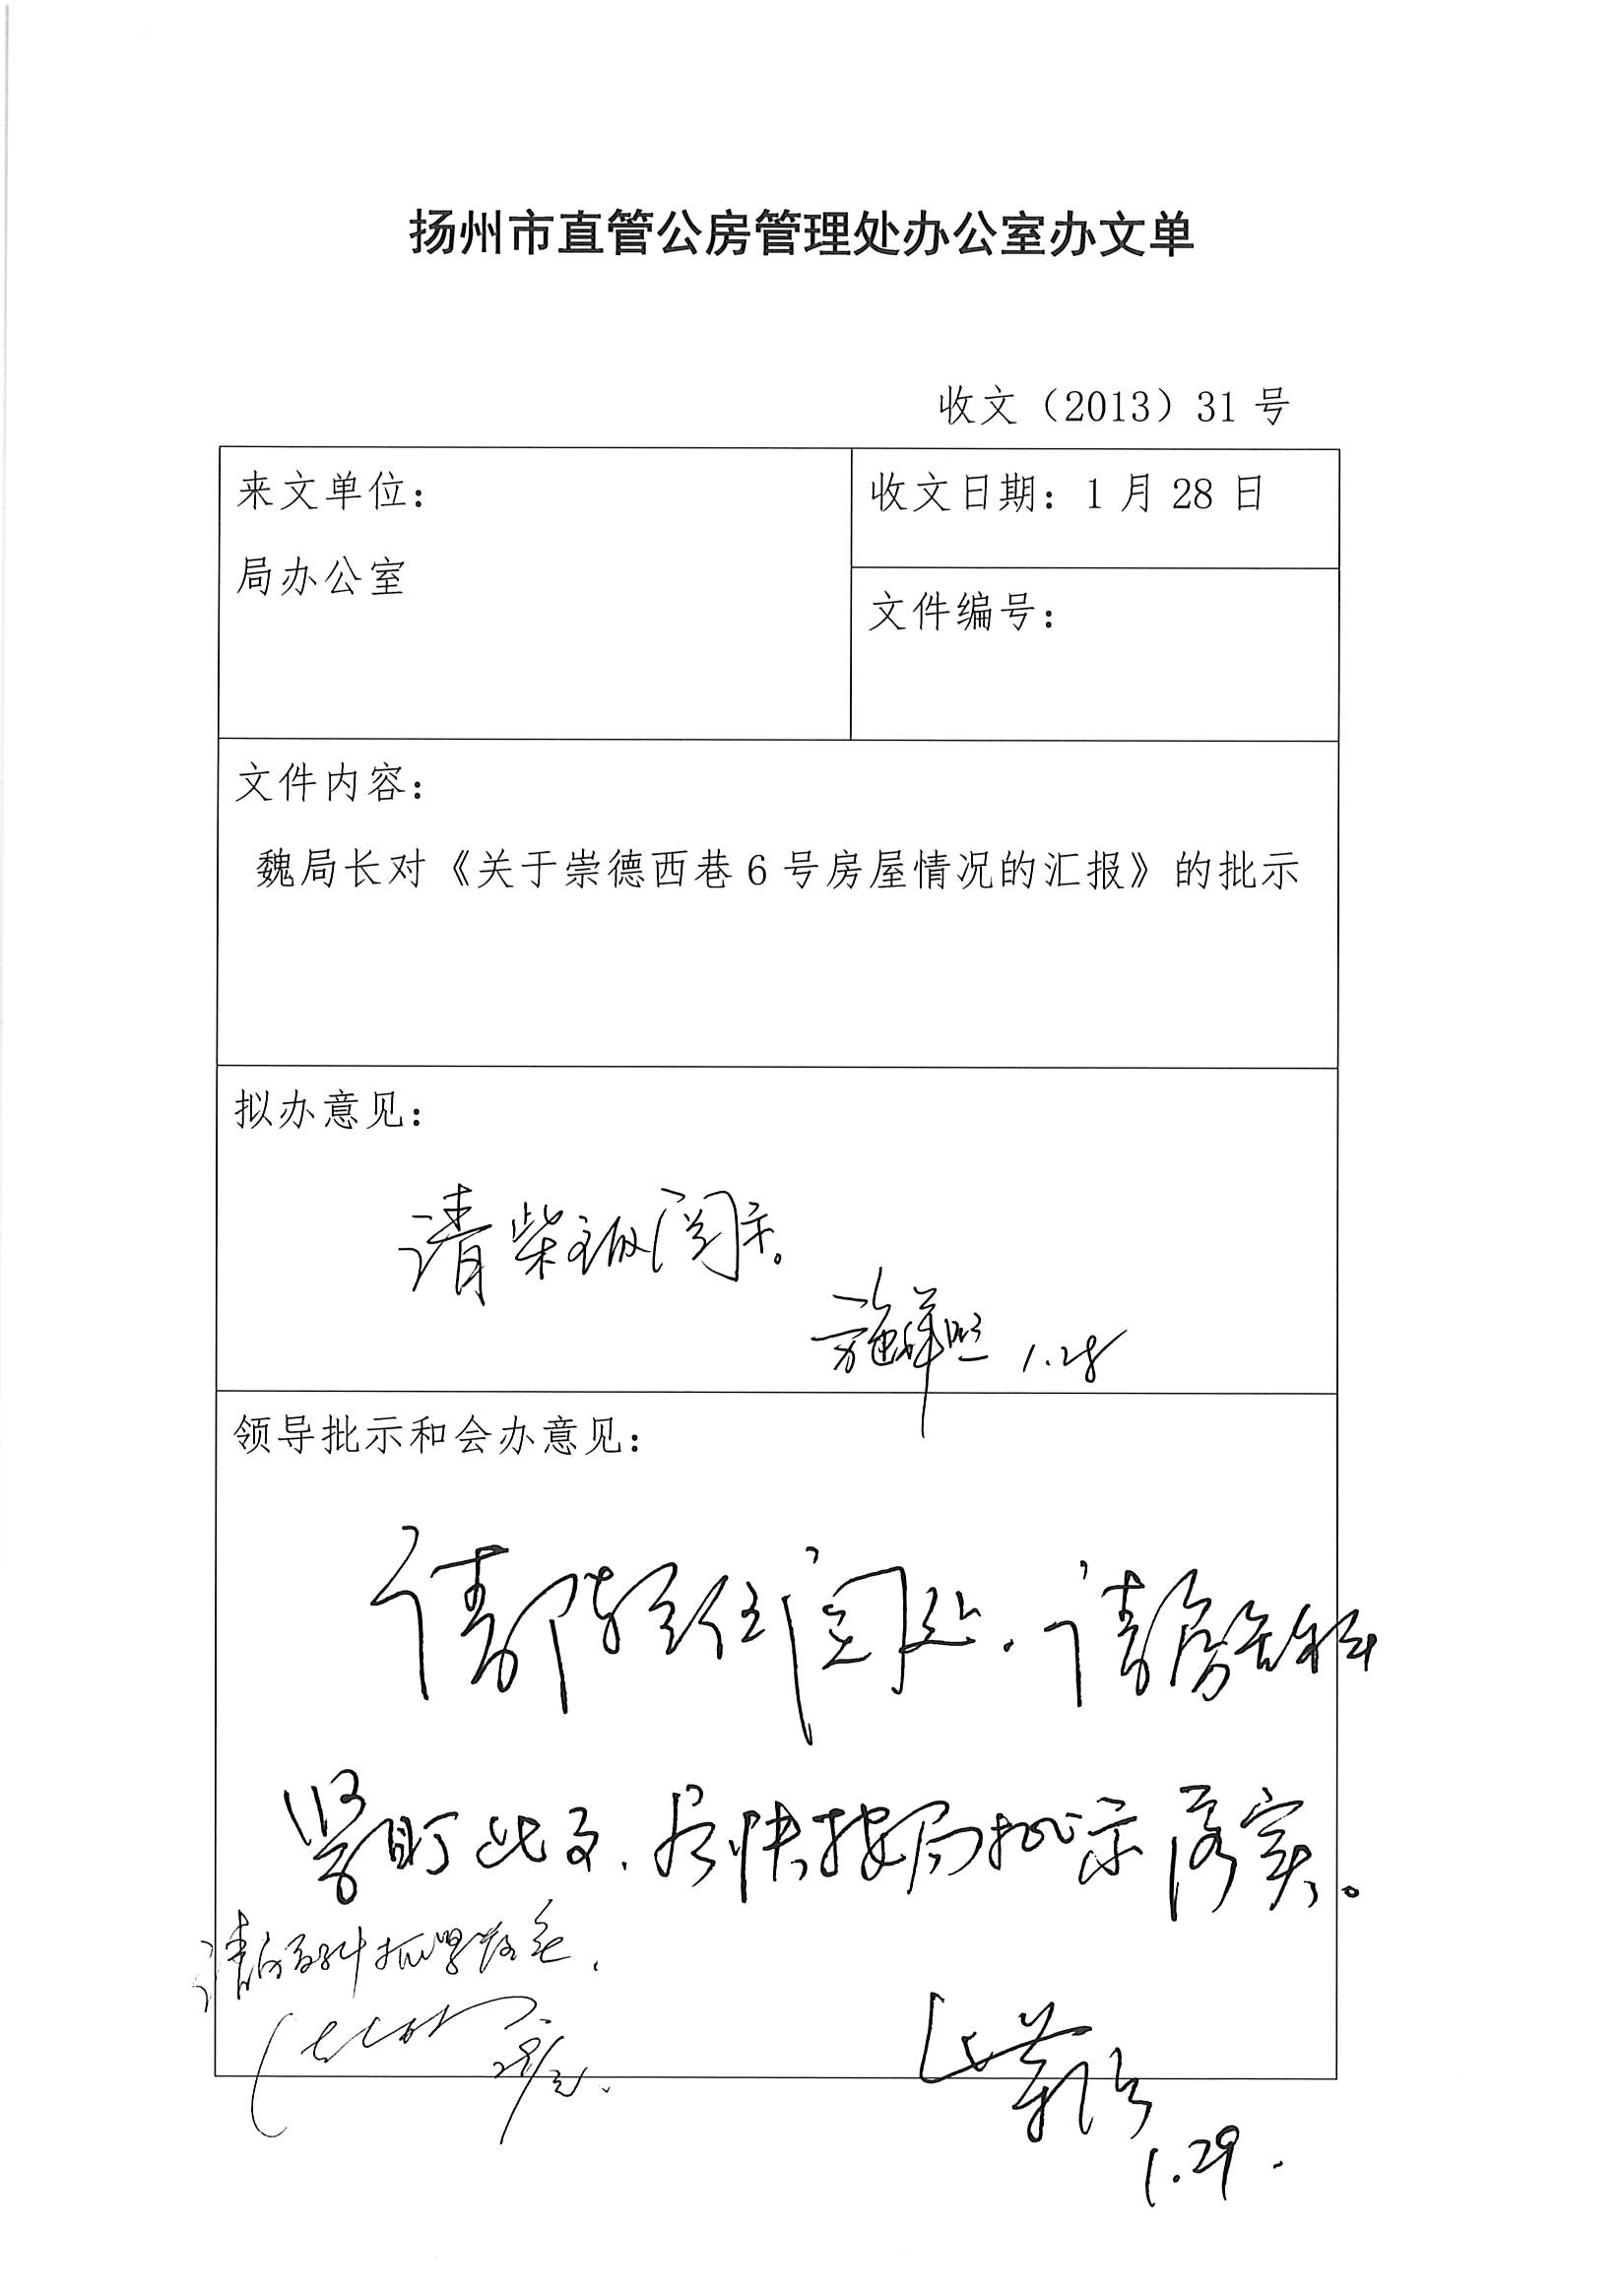 扬州市直管公房管理处办公室办文单
收文（2013）31 号
来文单位：
局办公室
收文日期：1 月 28 日
文件编号：
文件内容：
魏局长对《关于崇德西巷 6 号房屋情况的汇报》的批示
拟办意见：
请柴主任阅示。
1.28
领导批示和会办意见：
请 主任阅处.请房管科
紧盯此事.尽快按局批示落实。
请房管科抓紧落实.
29/元.
1.29.